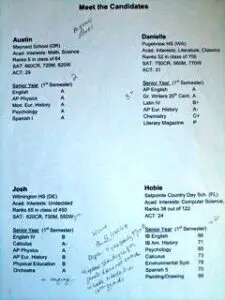 Meet the Candidates
Austin
Maynard School (OR)
Acad. Interests: Math, Science
Ranks 6 in class of 64
SAT: 660CR, 720M, 620W
ACT: 29
Senior Year (1st Semester)
English A
AP Physics A
Mod. Eur. History A
Psychology A
Spanish I A
Danielle
Pugetview HS (WA)
Acad. Interests: Literature, Classics
Ranks 52 in class of 705
SAT: 750CR, 560M, 770W
ACT: 31
Senior Year (1st Semester)
AP English A
Gr. Writers 20th Cent. A
Latin IV B+
AP Eur. History A-
Chemistry C+
Literary Magazine P
Josh
Wilmington HS (DE)
Acad. Interests: Undecided
Ranks 65 in class of 450
SAT: 620CR, 730M, 550W
Senior Year (1st Semester)
English IV B
Calculus A-
AP Physics A
AP Eur. History B
Physical Education B
Orchestra A
Hobie
Setpointe Country Day Sch. (FL)
Acad. Interests: Computer Science,
Ranks 38 out of 122
ACT: 24
Senior Year (1st Semester)
IB English 66
IB Am. History 71
Psychology 85
Calculus 73
Environmental Syst. 78
Spanish 5 70
Painting/Drawing 90